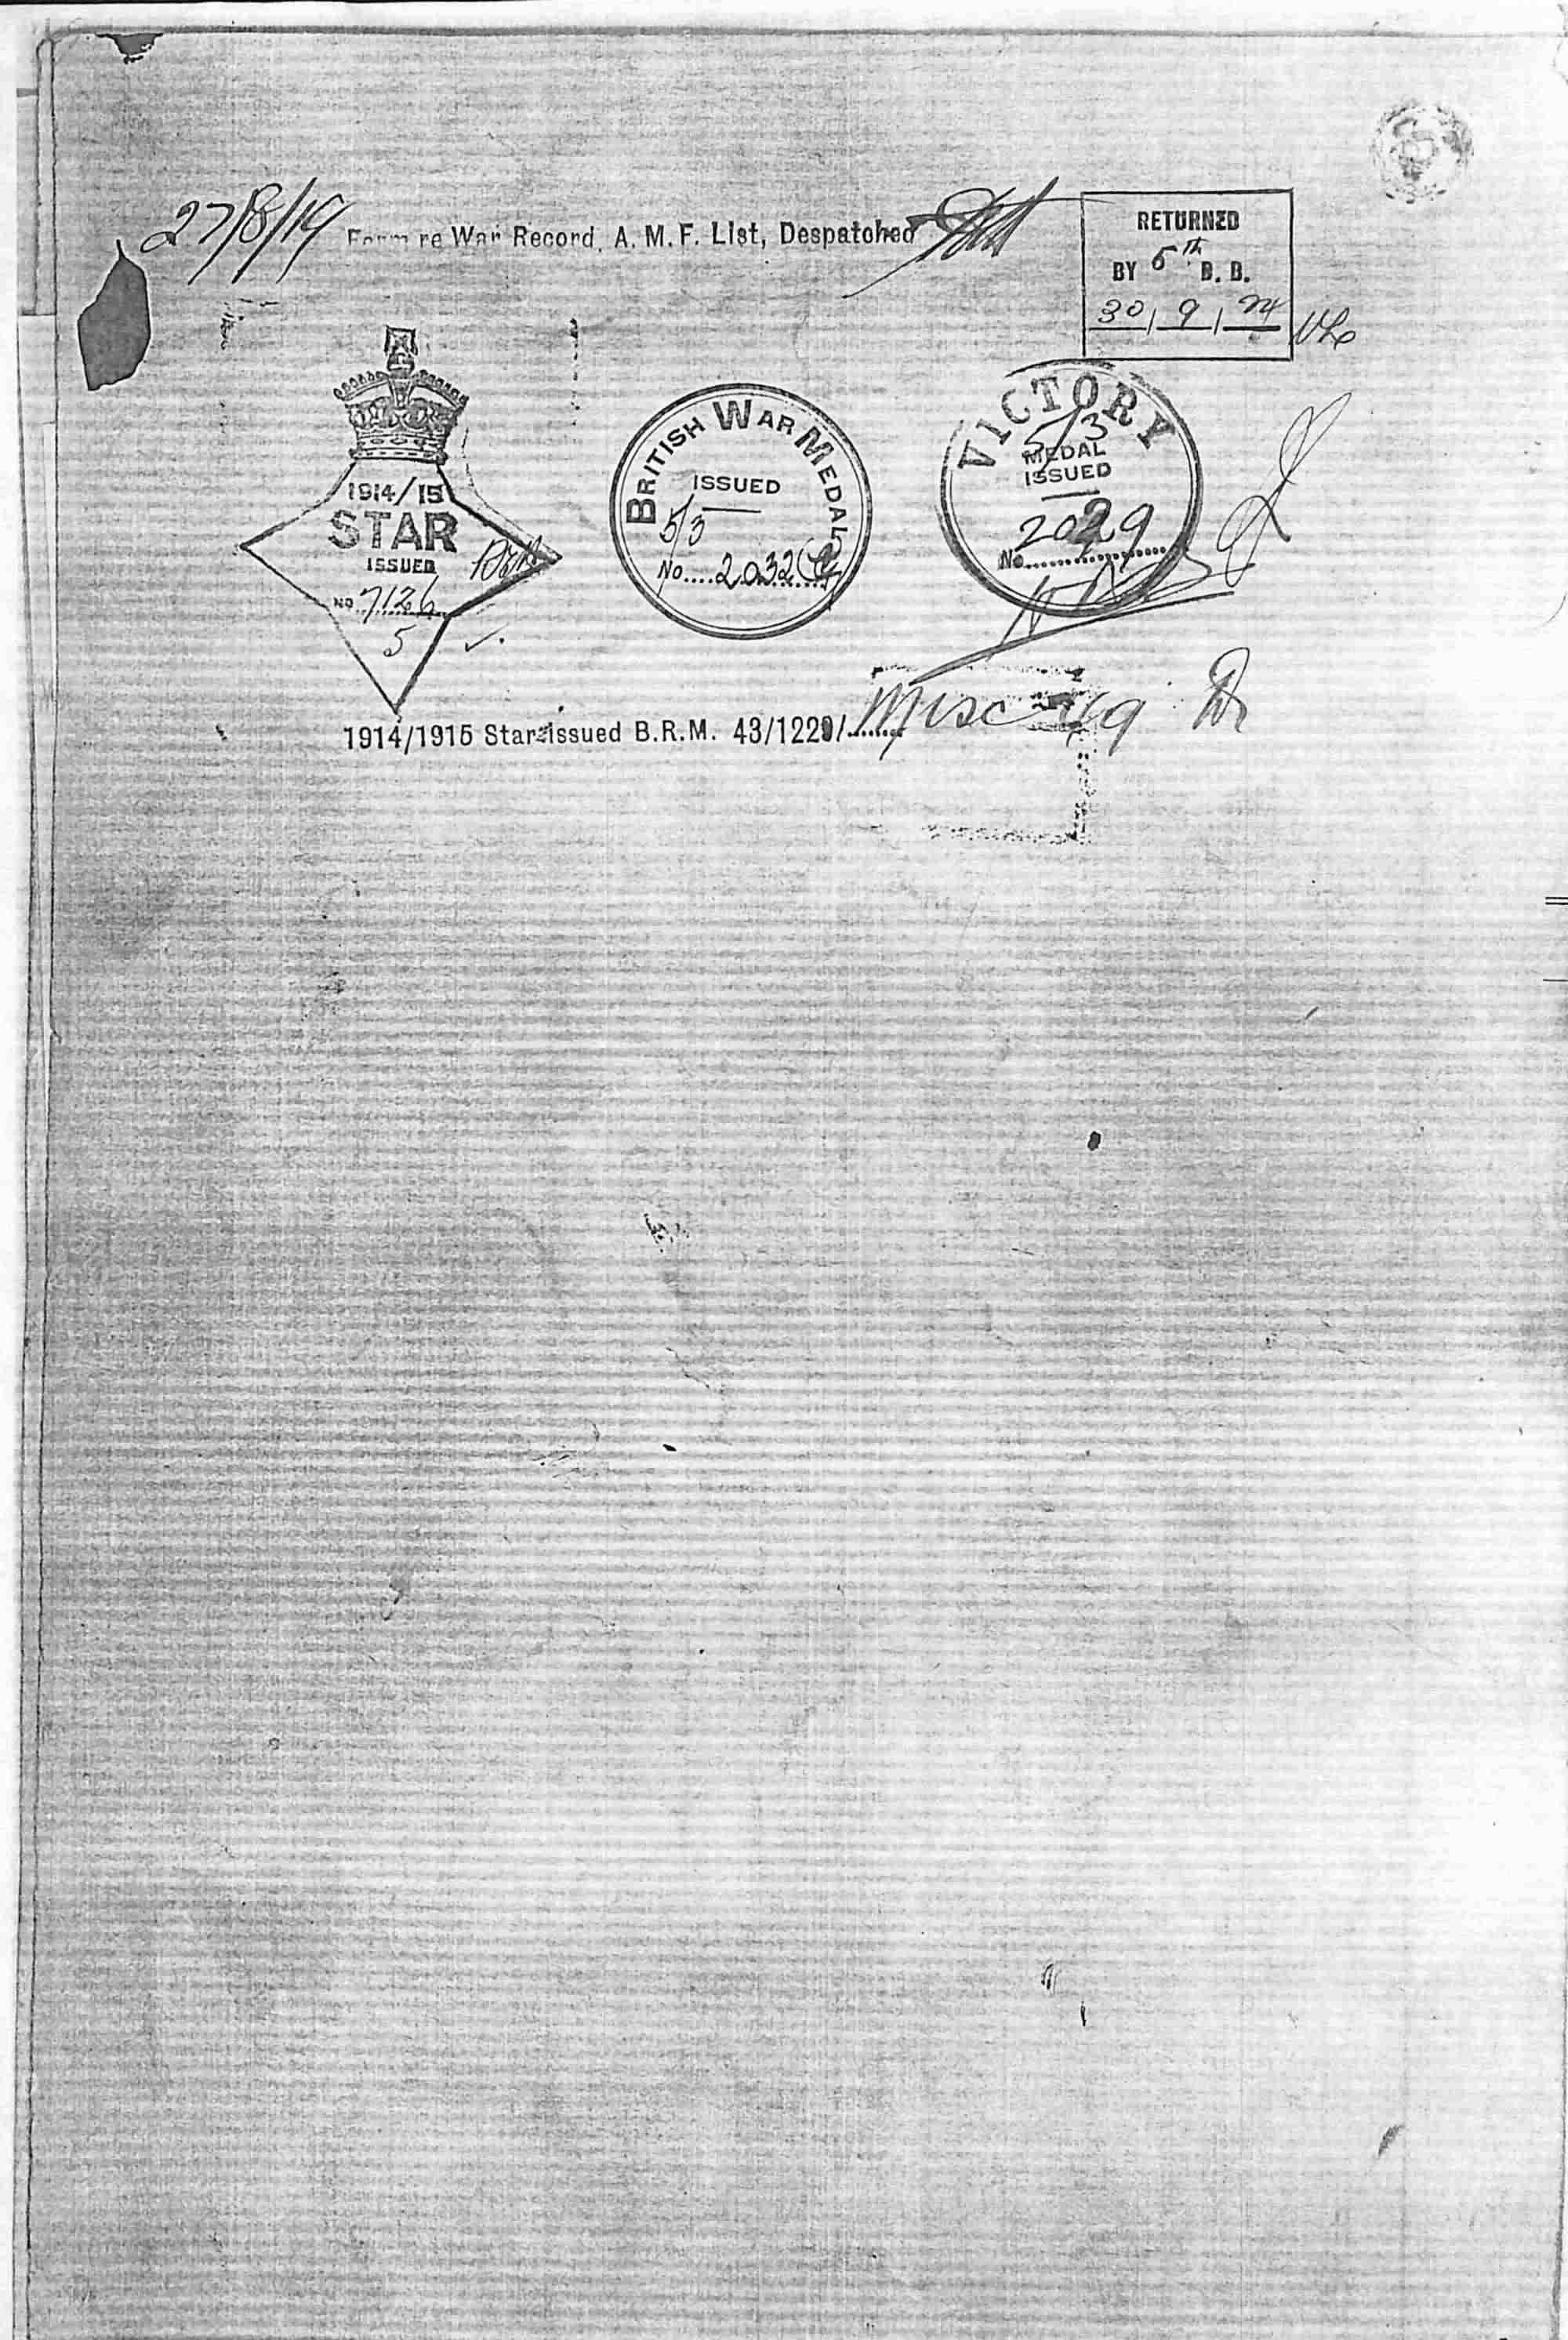 27/8/19 Form re War Record, A. M. F. List, Despatched
RETURNED
BY 5th B. D.
30/9/24
1914/15
STAR
ISSUED
No. 7126
5
BRITISH WAR MEDAL
ISSUED
5/3
No....2032
VICTORY
5/3
MEDAL
ISSUED
2029
No.
1914/1915 Star issued B.R.M. 43/1229/ Misc